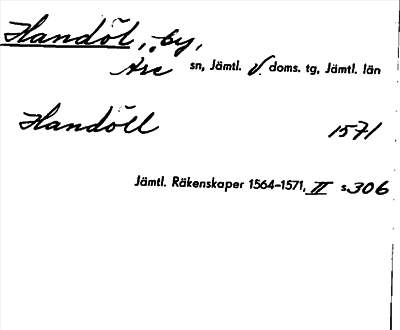 Handöl, by,
Åre sn, Jämtl. v. doms. tg, Jämtl. län
Handöll 1571
Jämtl. Räkenskaper 1564-1571, II s. 306